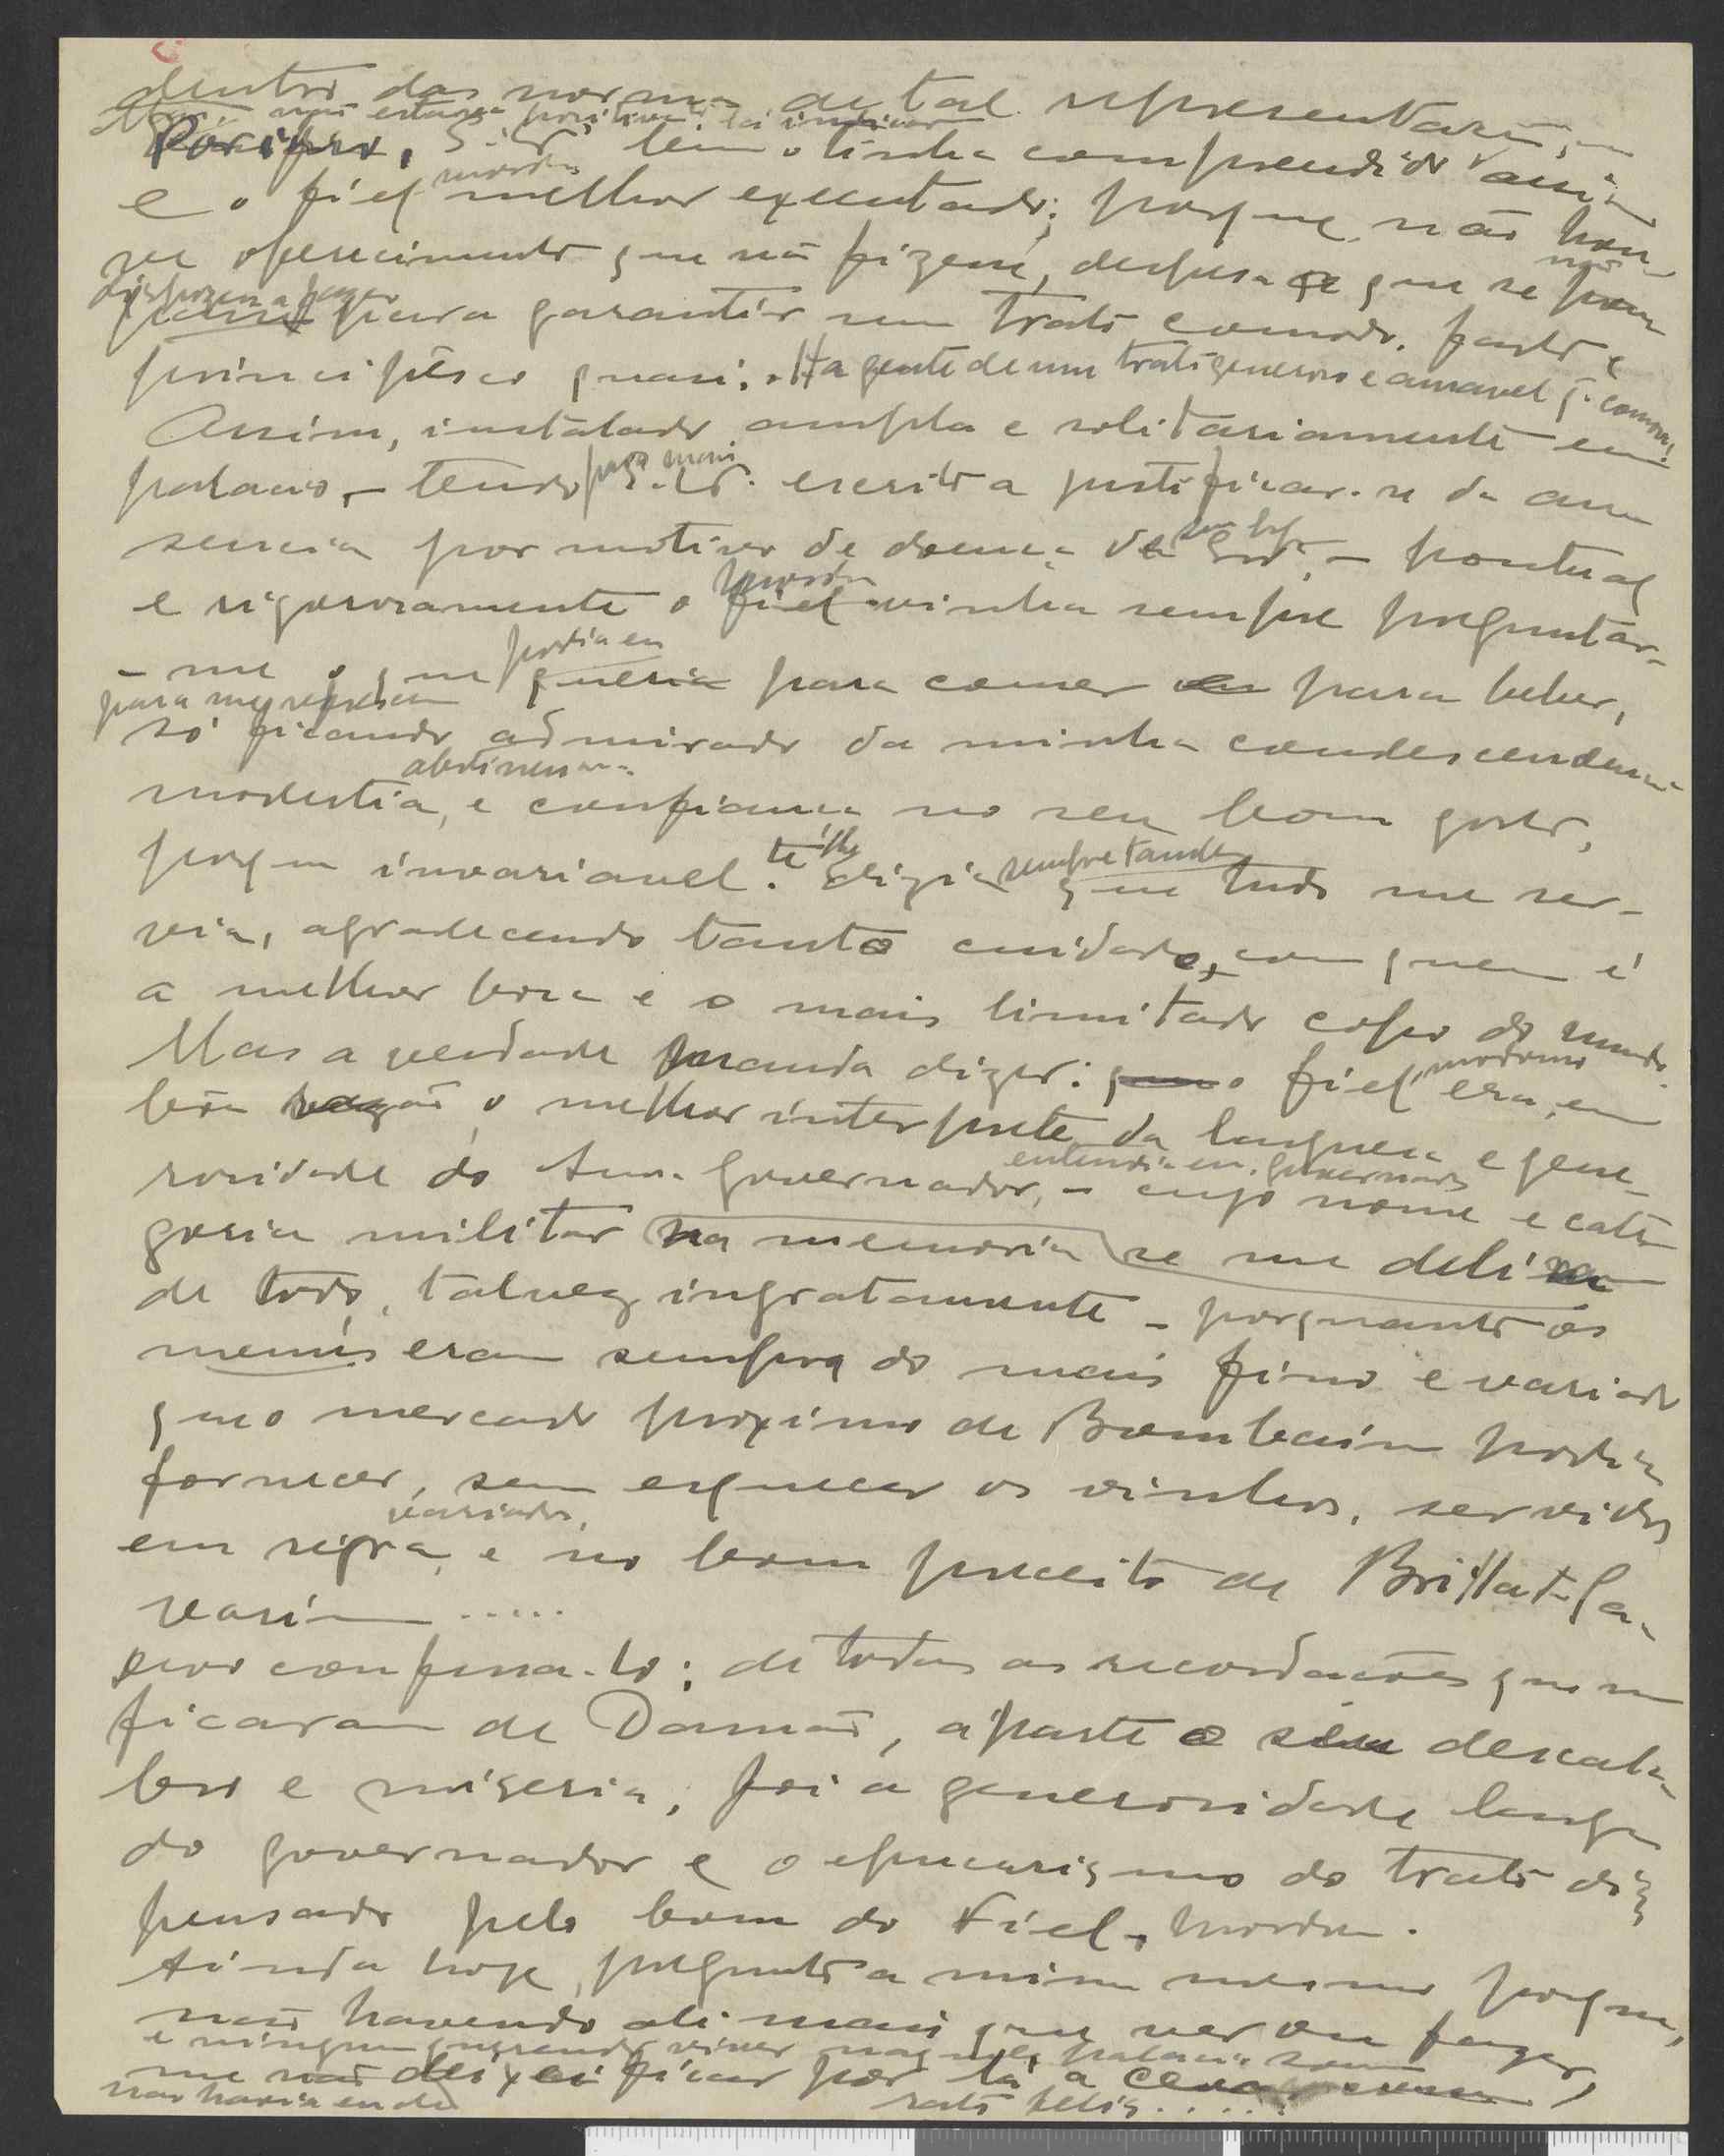 dentro das normas de tal representação,
S. Ex. bem o tinha comprehendido assim
e o fiel mordomo melhor executado; porque não hou-
ve oferecimento que não fizesse, despesa a que se não
dispozesse a fazer para garantir um trato comodo, farto e
principêsco quasi. Ha gente de um trato generoso e amavel q. comove!
Assim, instalado ampla e solitariamente em
palacio, – tendo S. Ex. escrito a justificar-se da au-
sencia por motivo de doença de – pontual
e rigorosamente o mordomo vinha sempre preguntar-
-me o que queria para comer para beber,
só ficando admirado da minha condescendencia
modestia, abstinencia e confiança no seu bom gosto,
porque invariavelmente lhe dizia que tudo me ser-
via, agradecendo tanto cuidado, com quem é
a melhor boca e o mais limitado copo do mundo.
Mas a verdade manda dizer: o fiel mordomo era, em
bôa razão, o melhor interprete da largueza e gene-
rosidade do Governador, – cujo nome e cate-
goria militar na memoria se me deliu
de todo, talvez ingratamente – porquanto os
menús eram sempre do mais fino e variado
que o mercado proximo de Bombaim podia
fornecer, sem esquecer os vinhos, servidos
em regra, variados, e no bom preceito de Brillat-Sa-
varin .....
Devo confessa-lo: de todas as recordações que me
ficaram de Damão, aparte o seu descala-
bro e miseria, foi a generosidade larga
do governador e o epicurismo do trato dis-
pensado pelo bom do Fiel-mordomo.
Ainda hoje pregunto a mim mesmo porque,
não havendo ali mais que ver ou fazer,
e ninguem querendo viver naquele palacio
me não deixei ficar por lá a
não havia